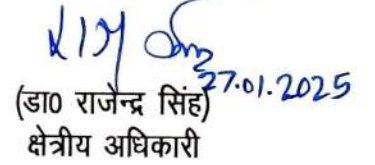 27.01.2025
(डा० राजेन्द्र सिंह)
क्षेत्रीय अधिकारी